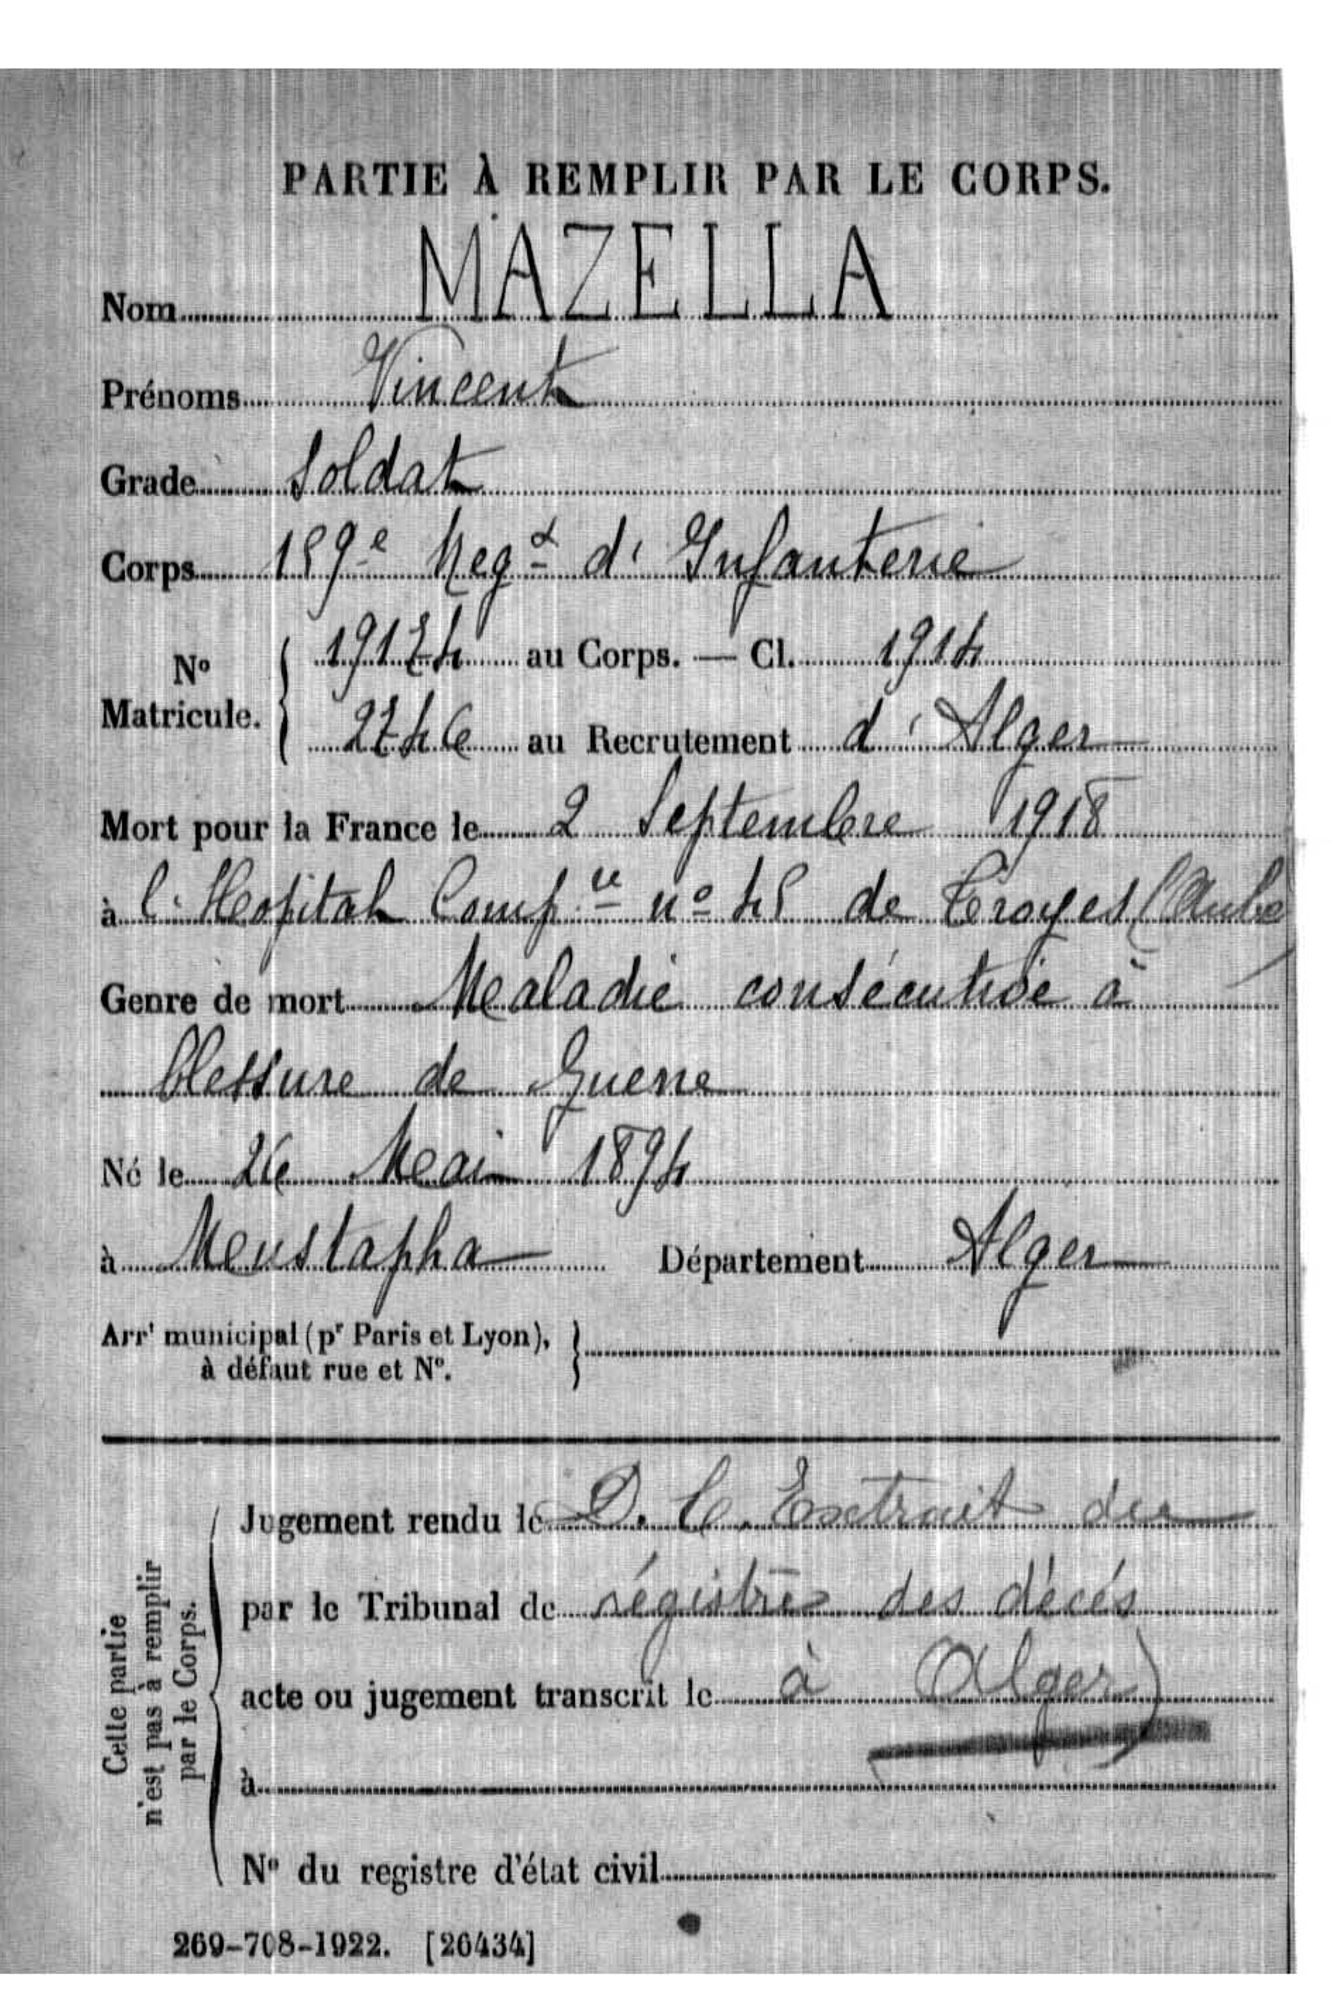 PARTIE À REMPLIR PAR LE CORPS.
Nom MAZELLA
Prénoms Vincent
Grade Soldat
Corps 159e Regt d'Infanterie
No Matricule. 19174 au Corps. — Cl. 1914
2746 au Recrutement d'Alger
Mort pour la France le 2 Septembre 1918
à l'Hopital Compre no 45 de Troyes (Aube)
Genre de mort Maladie consécutive à
blessure de Guerre
Né le 26 Mai 1894
à Mustapha Département Alger
Arrt municipal (pr Paris et Lyon),
à défaut rue et No.
Cette partie
n'est pas à remplir
par le Corps.
Jugement rendu le D. C. Extrait des
par le Tribunal de régistres des décés
acte ou jugement transcrit le à Alger)
à
No du registre d'état civil
269-708-1922. [26434]